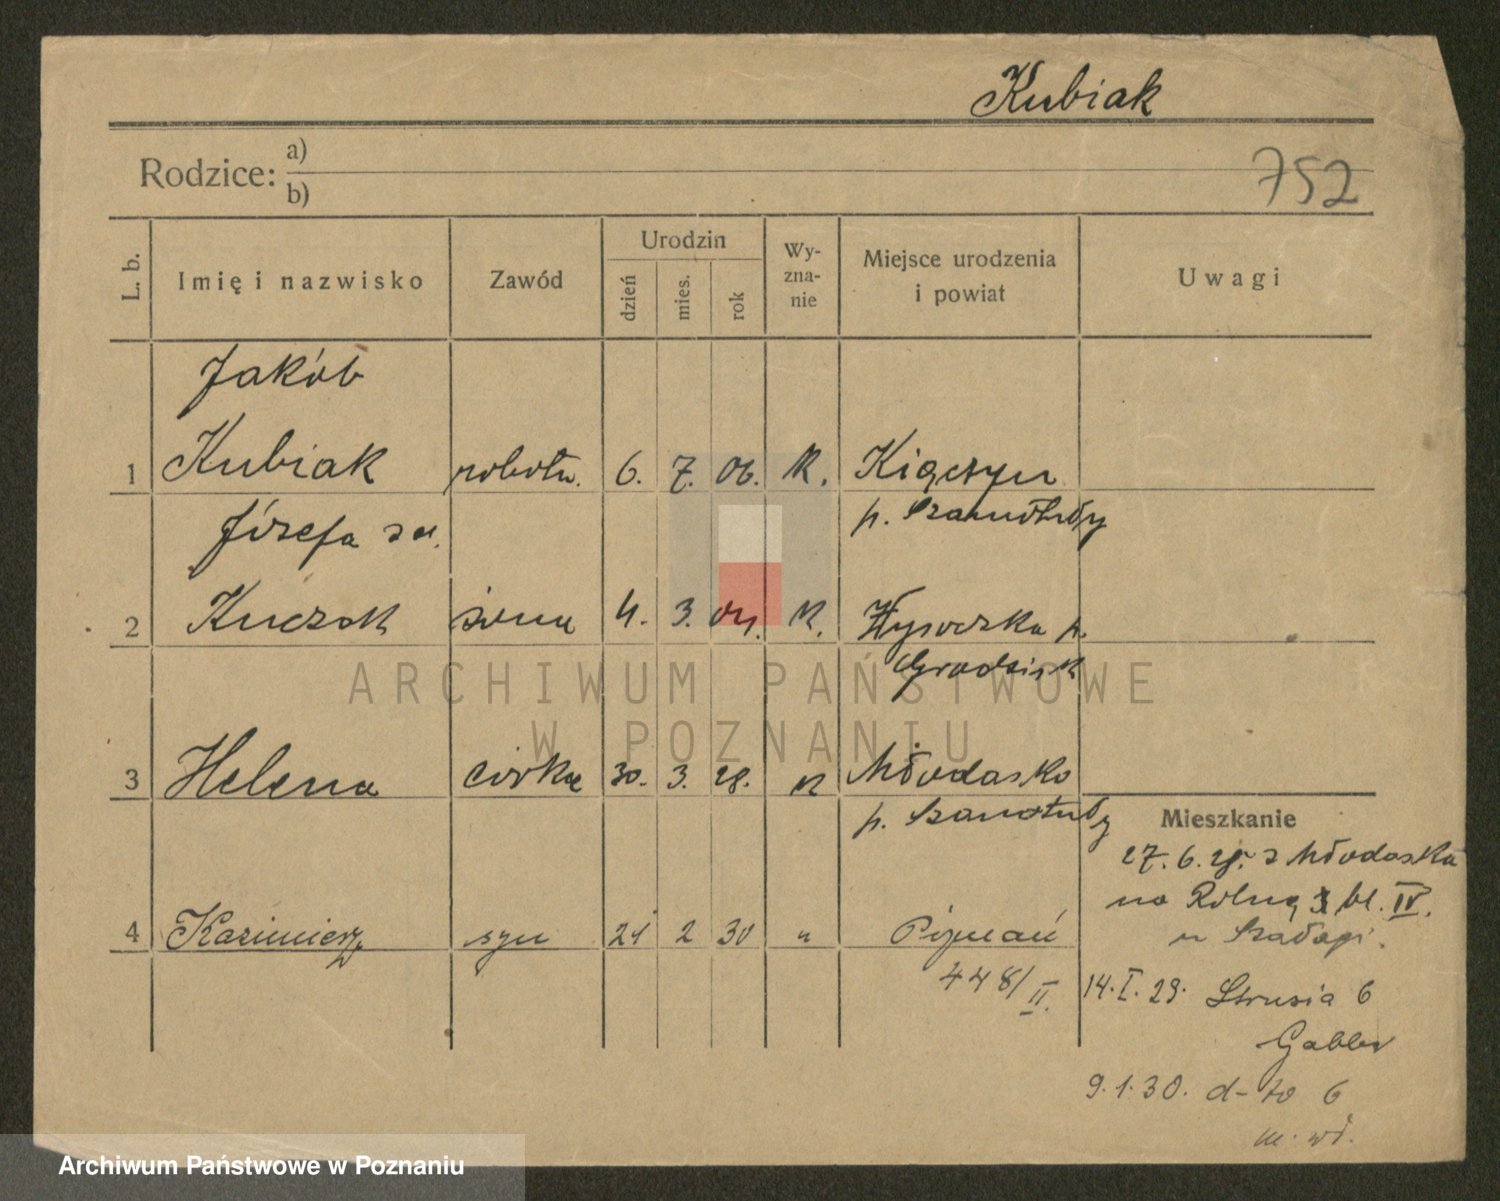 Kubiak
Rodzice: a)
b)
752
L. b.
Imię i nazwisko
Zawód
Urodzin
dzień
mies.
rok
Wy-
zna-
nie
Miejsce urodzenia
i powiat
Uwagi
Jakób
1 Kubiak robotn. 6. 7. 06. K.
p. Szamotuły
Józefa
2 żona 4. 3. 04. K. Wysoczka p.
Grodzisk
3 Helena córka 30. 3. 28. K Młodasko
p. Szamotuły
4 Kazimierz syn 21 2 30 " Poznań
448/II.
Mieszkanie
27. 6. 28. z Młodaska
na Rolną bl. IV.
14. I. 29. Strusia 6
Gabler
9.1.30. d-to 6
m. wł.
ARCHIWUM PAŃSTWOWE
W POZNANIU
Archiwum Państwowe w Poznaniu